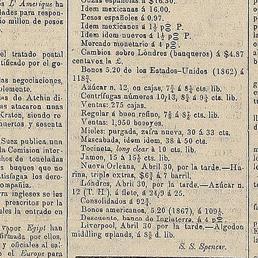 a L' Amerique ha
dades para respon-
io millon de pesos
el tratado postal
tificado por el go-
as negociaciones,
implemente.
os de Atchin di-
es atacaron unas
Kraton, siendo re-
uertos y sesenta
Suez publica, una
la Comision inter-
chos de toneladas
os buques que no
satisfagan los dere-
ompañía.
ra ingleses se les
prescritos por la
les la entrada en
vapor Egipt han
fortunada por ellos,
y oficiales al sal-
e el Europe para
Onzas españolas á $16.50.
Idem mexicanas á 16.00.
Pesos españoles á 0.97.
Idem mexicanos á
Idem idem nuevos á
Soverano monetario á 4
Cambios sobre Lóndres (banqueros) á $4.87
centavos la £.
Bonos 5.20 de los Estados-Unidos (1862) á
118¾.
Azúcar n. 12, en cajas, cts. lib.
Centrífugas números 10/13, 8¾ á 9¼ cts. lb.
Ventas: 275 cajas.
Regular á buen refino, 7¼ á 8¼ cts. lib.
Ventas: 1,950 bocoyes.
Mieles: purgada, zafra nueva, 30 á 33 cts.
Mascabada, idem idem, 38 á 50 cts.
Tocineta, long clear á 10 cts. lib.
Jamon, 15 á 15½ cts. lib.
Nueva Orleans, Abril 30, por la tarde.—Ha-
rina, triple extras, $6¾ á 7 barril.
Lóndres, Abril 30, por la tarde.—Azúcar n.
12 (T. H.), á dieto, á 24/9 á 25.
Consolidados á 92¾.
Bonos americanos, 5.20 (1867), á 109¼.
Descuento, banco de Inglaterra á 4 p⅌.
Liverpool, Abril 30, por la tarde.—Algodon
middling uplands, á 8¾ d. lib.
S. S. Spencer.